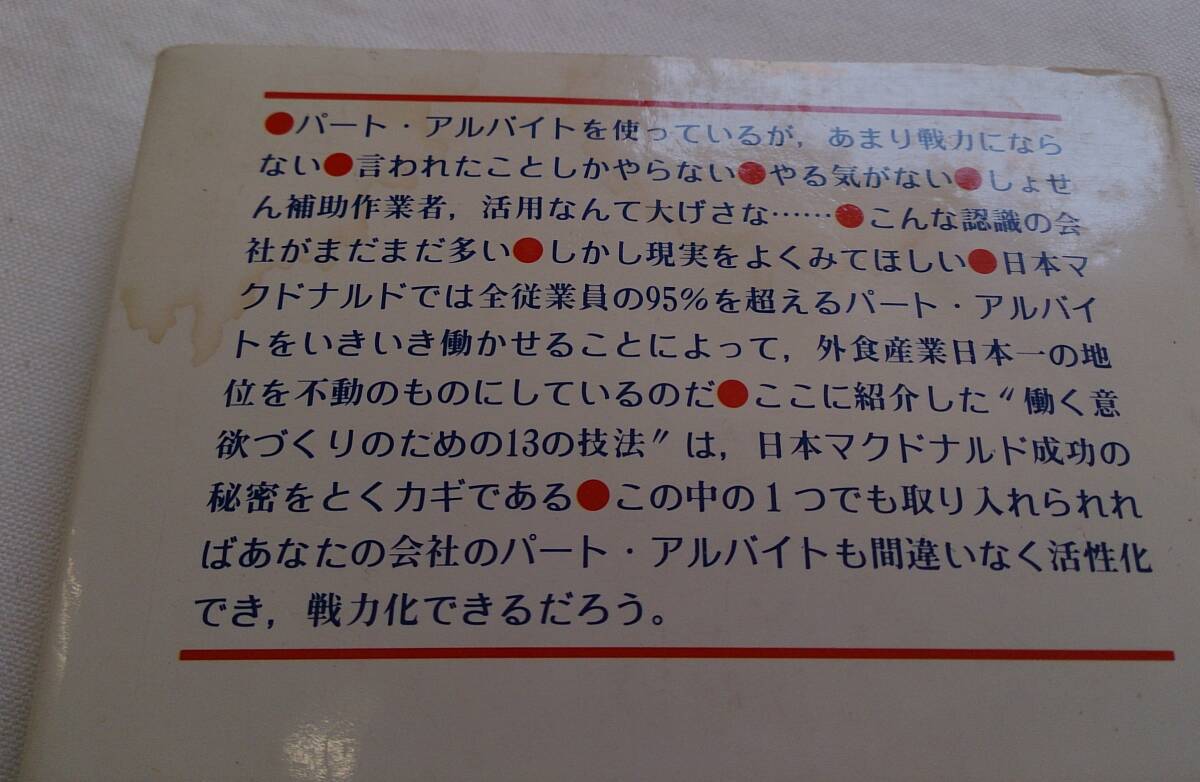 ●パート・アルバイトを使っているが，あまり戦力になら
ない●言われたことしかやらない●やる気がない●しょせ
ん補助作業者，活用なんて大げさな……●こんな認識の会
社がまだまだ多い●しかし現実をよくみてほしい●日本マ
クドナルドでは全従業員の95%を超えるパート・アルバイ
トをいきいき働かせることによって，外食産業日本一の地
位を不動のものにしているのだ●ここに紹介した〝働く意
欲づくりのための13の技法〟は，日本マクドナルド成功の
秘密をとくカギである●この中の1つでも取り入れられれ
ばあなたの会社のパート・アルバイトも間違いなく活性化
でき，戦力化できるだろう。